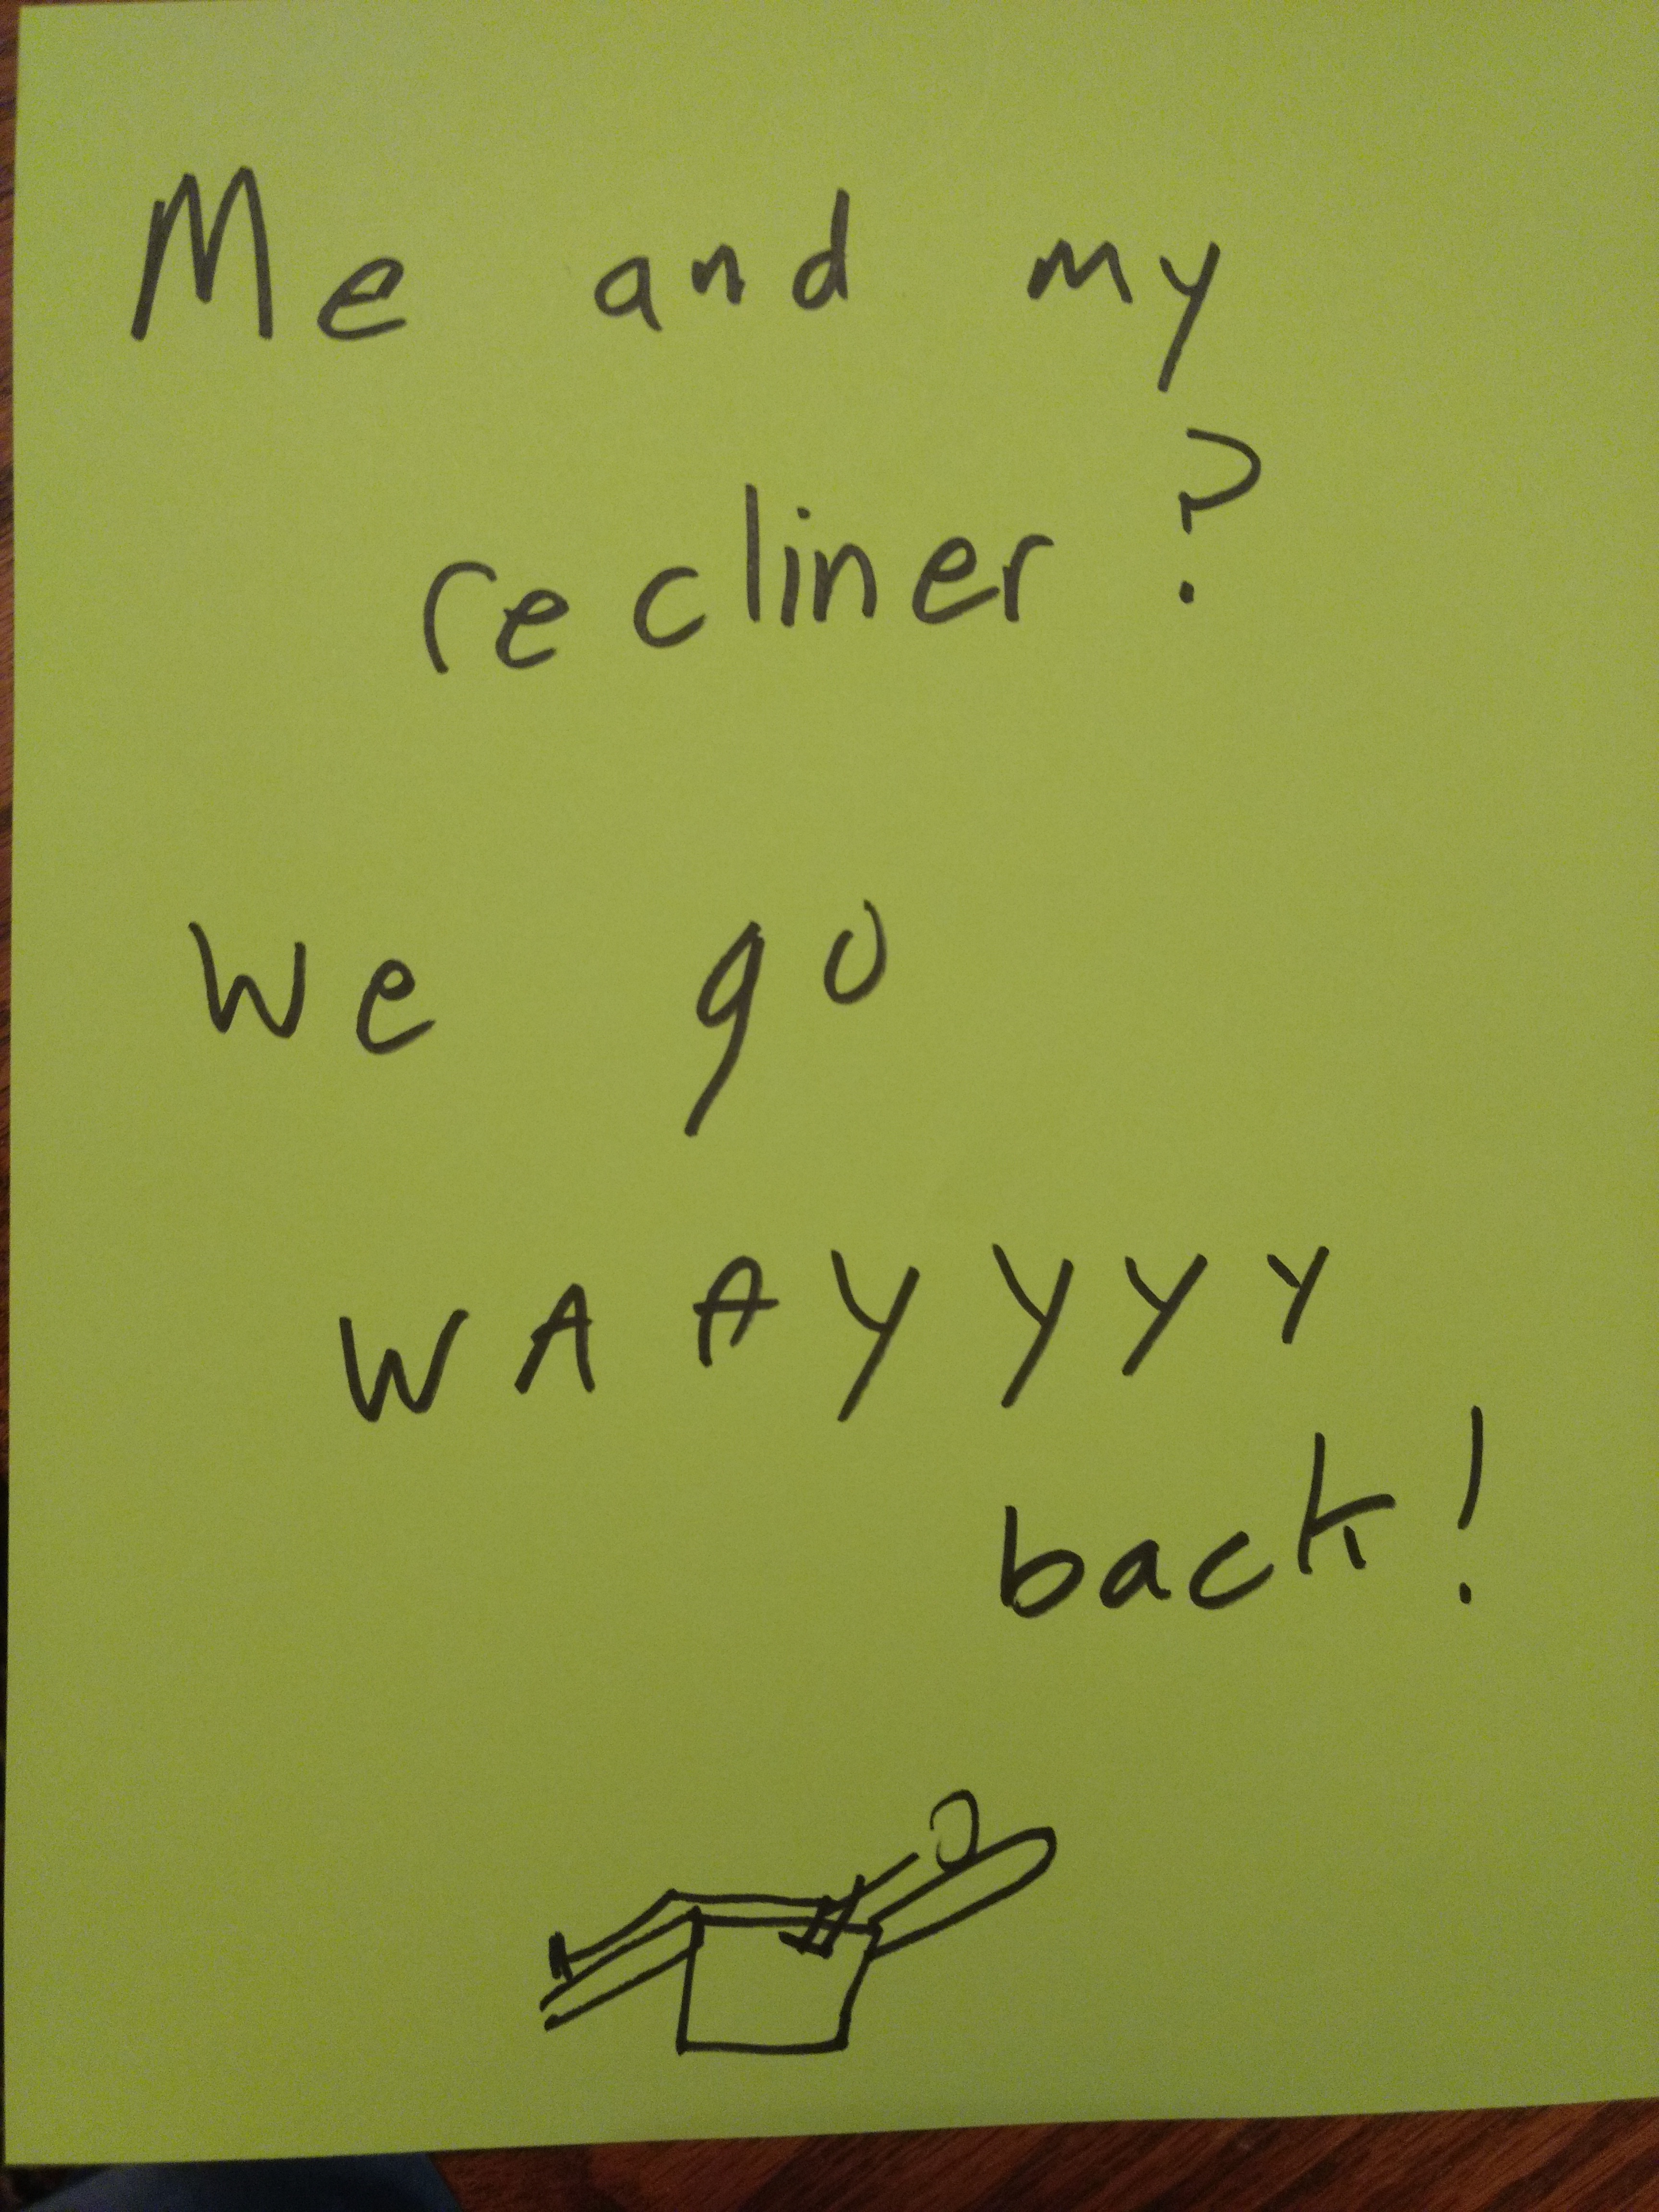 Me and my
recliner?
We go
WAAYYYY
back!